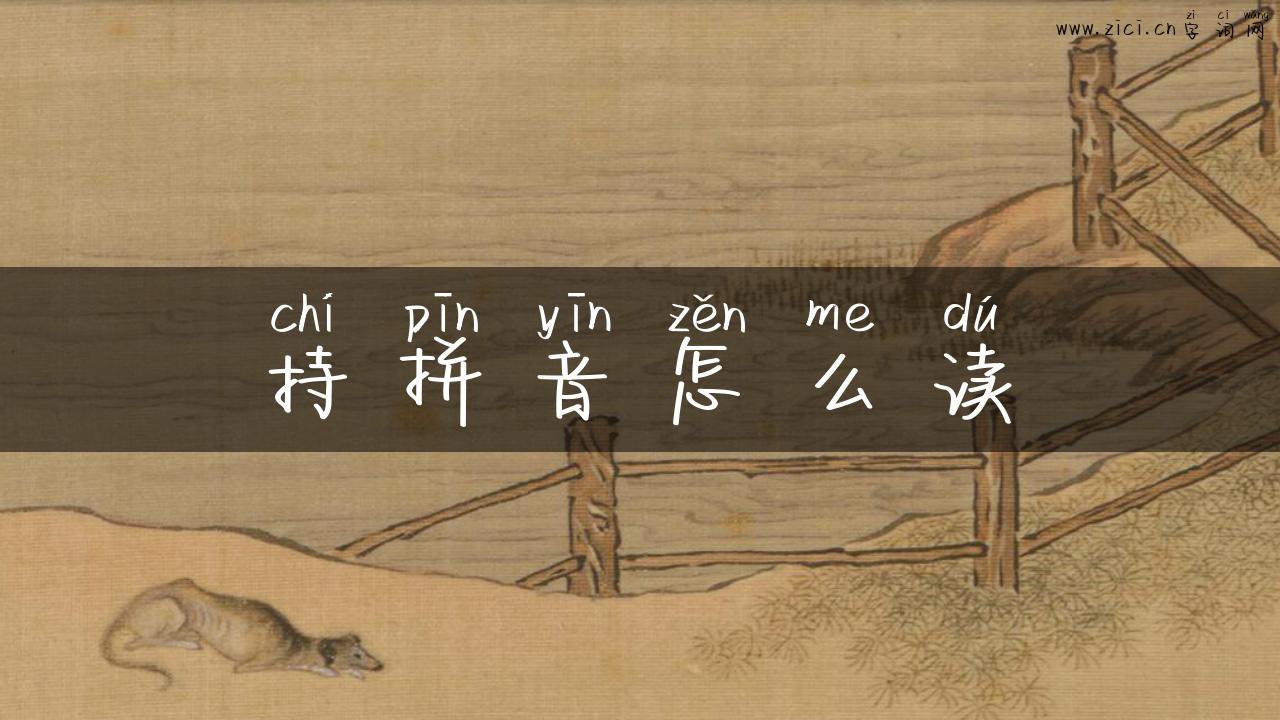 zì cí wǎng
www.zici.cn 字词网
chí pīn yīn zěn me dú
持拼音怎么读